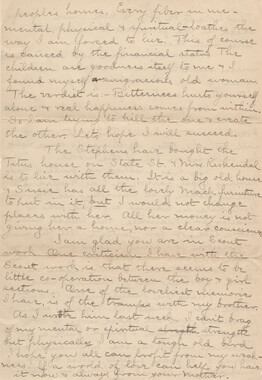 people's homes. Every fiber in me -
mental, physical & spiritual - loathes the
way I am forced to live. This of course
is caused by the financial status The
children are goodness itself to me & I
found myself a ungracious old woman
The verdict is - Bitterness hurts yourself
alone & real happiness comes from within.
So I am trying to kill the one & create
the other. Lets hope I will succeed.
The Stephens hair bought the
house on State St. & Mrs.
is to live with them. It is a big old house
& has all the lovely furniture
to put in it, but I would not change
places with her. All her money is not
giving her a home, nor a clear conscience.
I am glad you are in Scout
work. One criticism I have with the
Scout work is that there seems to be
little cooperation between the boy & girl
sections. One of the loveliest memories
I have, is of the tramps with my brother.
As I him last week I can't brag
of my mental or spiritual strength
but physically I am a tough old bird
I hope you all can profit from my weak-
ness. If a world of love can help you have
it now & always from your Mother.